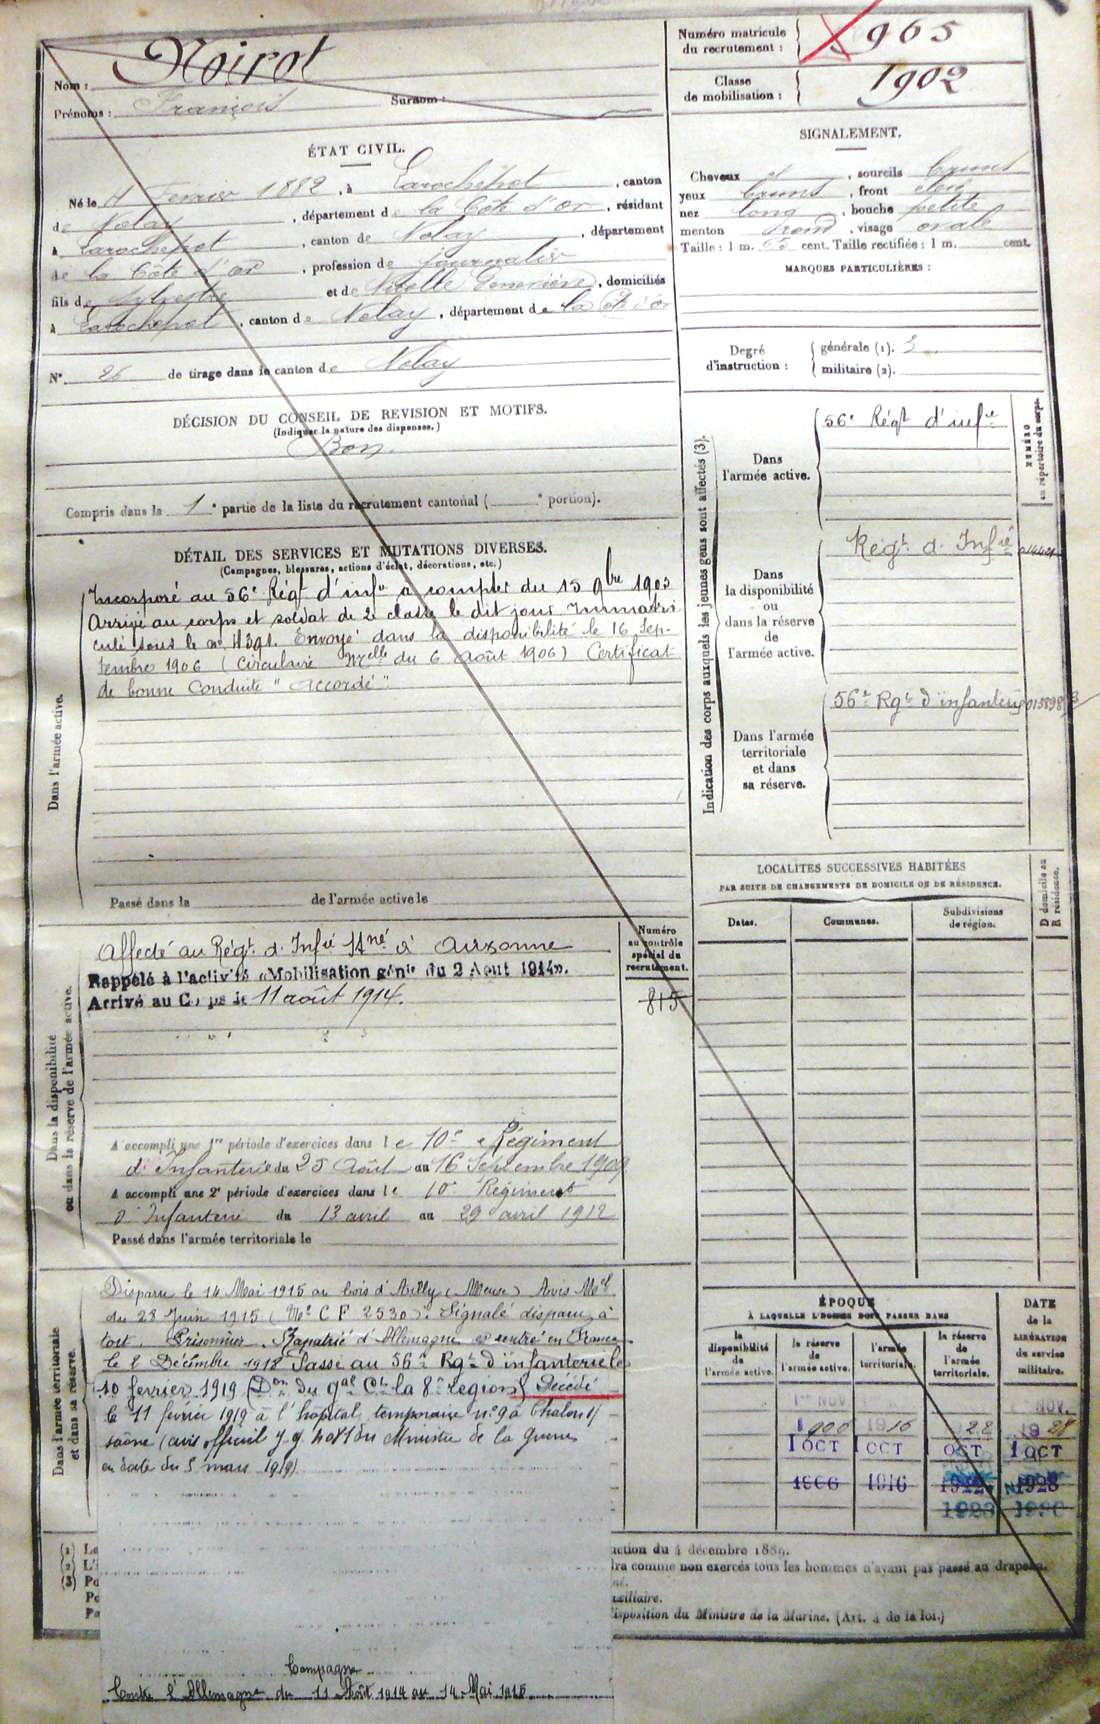 Nom : Noirot
Prénoms : François Surnom :
Numéro matricule du recrutement : 965
Classe de mobilisation : 1902
ÉTAT CIVIL.
Né le 4 Fevrier 1882, à Larochepot, canton
de Nolay, département de la Côte d'or, résidant
à Larochepot, canton de Nolay, département
de la Côte d'or, profession de journalier
fils de Sylvestre et de Geneviève, domiciliés
à Larochepot, canton de Nolay, département de la Côte d'or
N° 26 de tirage dans le canton de Nolay
SIGNALEMENT.
Cheveux et, sourcils bruns
yeux bruns, front
nez long, bouche petite
menton rond, visage ovale
Taille : 1 m. cent. Taille rectifiée : 1 m. cent.
MARQUES PARTICULIÈRES :
Degré d'instruction : générale (1). 3
militaire (2).
DÉCISION DU CONSEIL DE REVISION ET MOTIFS.
(Indiquer la nature des dispenses.)
Bon.
Compris dans la 1e partie de la liste du recrutement cantonal ( e portion).
DÉTAIL DES SERVICES ET MUTATIONS DIVERSES.
(Campagnes, blessures, actions d'éclat, décorations, etc.)
Dans l'armée active.
Incorporé au 56e Régt d'infie à compter du 15 9bre 1903
Arrivé au corps et soldat de 2e classe le dit jour Immatri
culé sous le no 4391. Envoyé dans la disponibilité le 16 Sep-
tembre 1906 (Circulaire Mielle du 6 Août 1906) Certificat
de bonne Conduite "Accordé"
Passé dans la de l'armée active le
Dans la disponibilité
ou dans la réserve de l'armée active.
Affecté au Régt. d'Infie à Auxonne
Rappelé à l'activité «Mobilisation génle du 2 Aout 1914».
Arrivé au Corps le 11 août 1914.
Numéro au contrôle spécial du recrutement.
815
A accompli une 1re période d'exercices dans le 10e Régiment
d'Infanterie du 25 Août au 16 Septembre 1909
A accompli une 2e période d'exercices dans le 10e Régiment
d'Infanterie du 13 avril au 29 avril 1912
Passé dans l'armée territoriale le
Dans l'armée territoriale
et dans sa réserve.
Disparu le 14 Mai 1915 au bois d'Ailly (Meuse) Avis Mel
du 28 Juin 1915 (Me C F 2530). Signalé disparu à
tort. Prisonnier. Rapatrié d'Allemagne et rentré en France
le 8 Décembre 1918 Passé au 56e Rgt d'infanterie le
10 fevrier 1919 (Don du gal Ct la 8e région) Décédé
le 11 février 1919 à l'hôpital temporaire n° 9 à Chalon s/
saône (avis officiel du Ministre de la Guerre
en date du 5 mars 1919)
Campagne
Contre l'Allemagne du 11 Août 1914 au 14 Mai 1915
Indication des corps auxquels les jeunes gens sont affectés (3).
NUMÉRO au répertoire du corps.
Dans l'armée active.
56e Régt d'infie
Dans la disponibilité ou dans la réserve de l'armée active.
Régt. d. Infie
Dans l'armée territoriale et dans sa réserve.
56e Rgt d'infanterie
LOCALITÉS SUCCESSIVES HABITÉES
PAR SUITE DE CHANGEMENTS DE DOMICILE OU DE RÉSIDENCE.
Dates. Communes. Subdivisions de région. D domicile ou R résidence.
ÉPOQUE
À LAQUELLE L'HOMME DOIT PASSER DANS
la disponibilité de l'armée active.
la réserve de l'armée active.
l'armée territoriale.
la réserve de l'armée territoriale.
DATE de la LIBÉRATION du service militaire.
1 NOV. NOV.
1906 1916 22 1928
1 OCT 1 OCT OCT 1 OCT
1906 1916 1922 1928
1923
(1) Le
(2) L'i
(3) Po
Po
Pa
ction du 4 décembre 1889.
dra comme non exercés tous les hommes n'ayant pas passé au drapeau.
xiliaire.
disposition du Ministre de la Marine. (Art. 4 de la loi.)